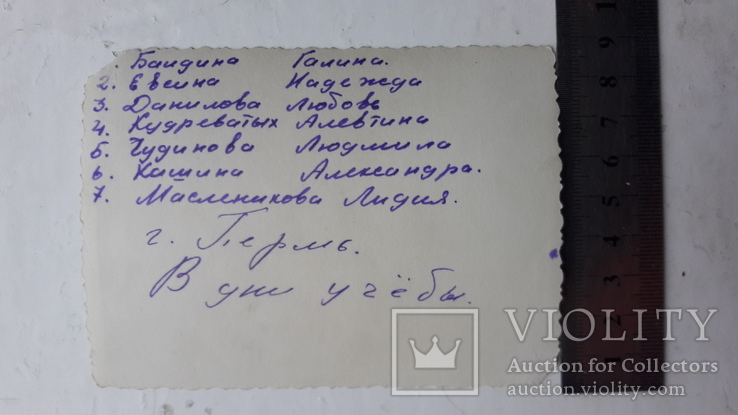 1. Баидина Галина.
2. Евсина Надежда
3. Данилова Любовь
4. Кудреватых Алевтина
5. Чудинова Людмила
6. Кашина Александра.
7. Масленикова Лидия.
г. Пермь.
В дни учёбы.
1 2 3 4 5 6 7 8 9
VIOLITY
Auction for Collectors
auction.violity.com